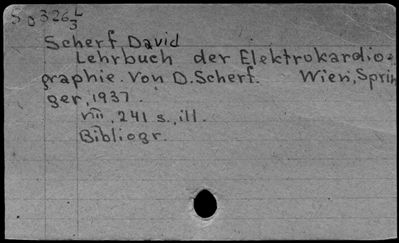 S 0326 L/3
Scherf David
Lehrbuch der Elektrokardio=
graphie. Von D. Scherf. Wien, Sprin
ger, 1937.
VIII, 241 s., ill.
Bibliogr.